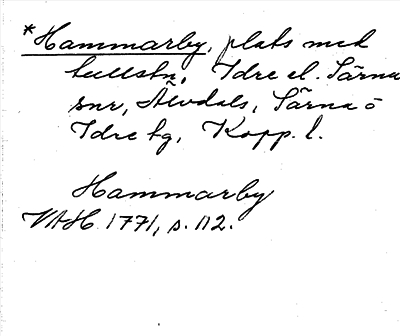 *Hammarby, plats med
tullstn, Idre el. Särna
snr, Älvdals, Särna o
Idre tg, Kopp. l.
Hammarby
VAH 1771, s. 112.